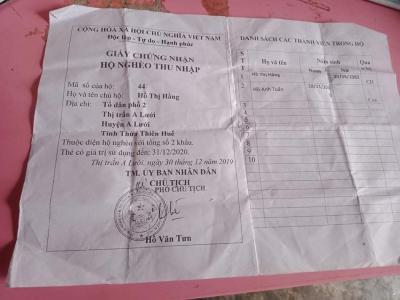 CỘNG HÒA XÃ HỘI CHỦ NGHĨA VIỆT NAM
Độc lập - Tự do - Hạnh phúc
GIẤY CHỨNG NHẬN
HỘ NGHÈO THU NHẬP
Mã số của hộ: 44
Họ và tên chủ hộ: Hồ Thị Hằng
Địa chỉ: Tổ dân phố 2
Thị trấn A Lưới
Huyện A Lưới
Tỉnh Thừa Thiên Huế
Thuộc diện hộ nghèo với tổng số 2 khẩu.
Thẻ có giá trị sử dụng đến: 31/12/2020.
Thị trấn A Lưới, ngày 30 tháng 12 năm 2019
TM. ỦY BAN NHÂN DÂN
CHỦ TỊCH
PHÓ CHỦ TỊCH
Hồ Văn Tưn
DANH SÁCH CÁC THÀNH VIÊN TRONG HỘ
S
T
T
Họ và tên
Năm sinh
Nam
1
Hồ Thị Hằng
2
Hồ Anh Tuấn
3
4
5
6
7
8
9
10